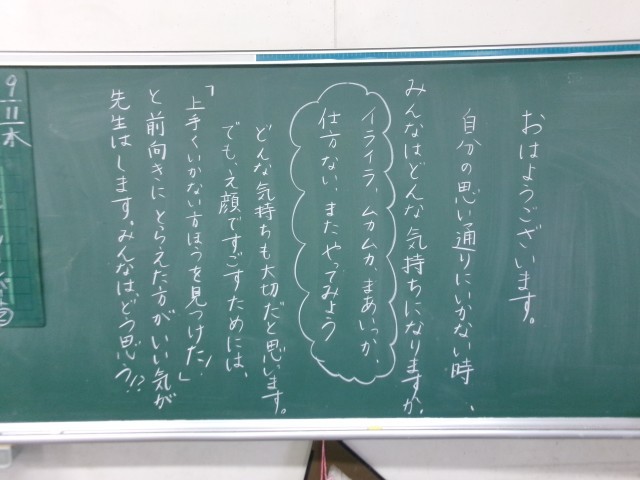 おはようございます。
自分の思い通りにいかない時、
みんなはどんな気持ちになりますか。
イライラ、ムカムカ、まあいっか、
仕方ない、またやってみよう
どんな気持ちも大切だと思います。
でも、え顔ですごすためには、
「上手くいかない方ほうを見つけた!」
と前向きにとらえた方がいい気が
先生はします。みんなはどう思う!?
9
11
木